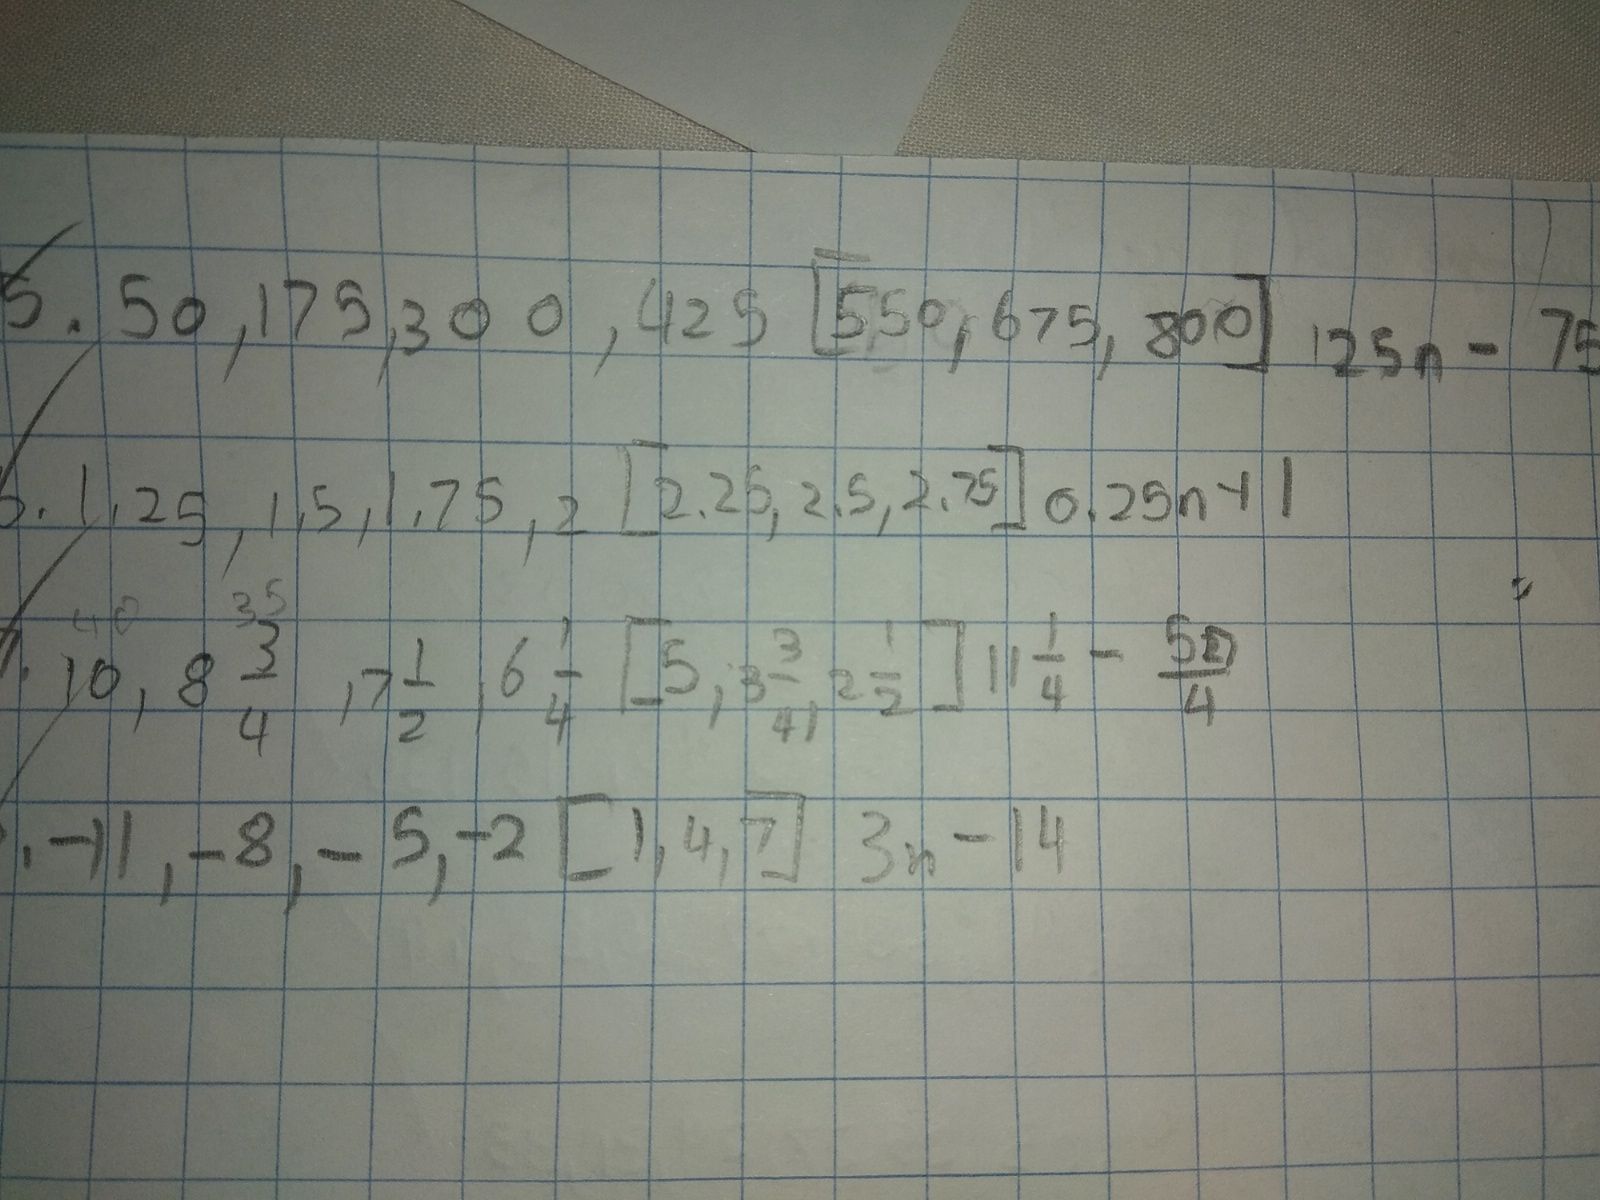 5. 50, 175, 300, 425 [550, 675, 800] 125n - 75
6. 1.25, 1.5, 1.75, 2 [2.25, 2.5, 2.75] 0.25n + 1
40 35
7. 10, 8 3/4, 7 1/2, 6 1/4 [5, 3 3/4, 2 1/2] 11 1/4 - 5n/4
. -11, -8, -5, -2 [1, 4, 7] 3n - 14